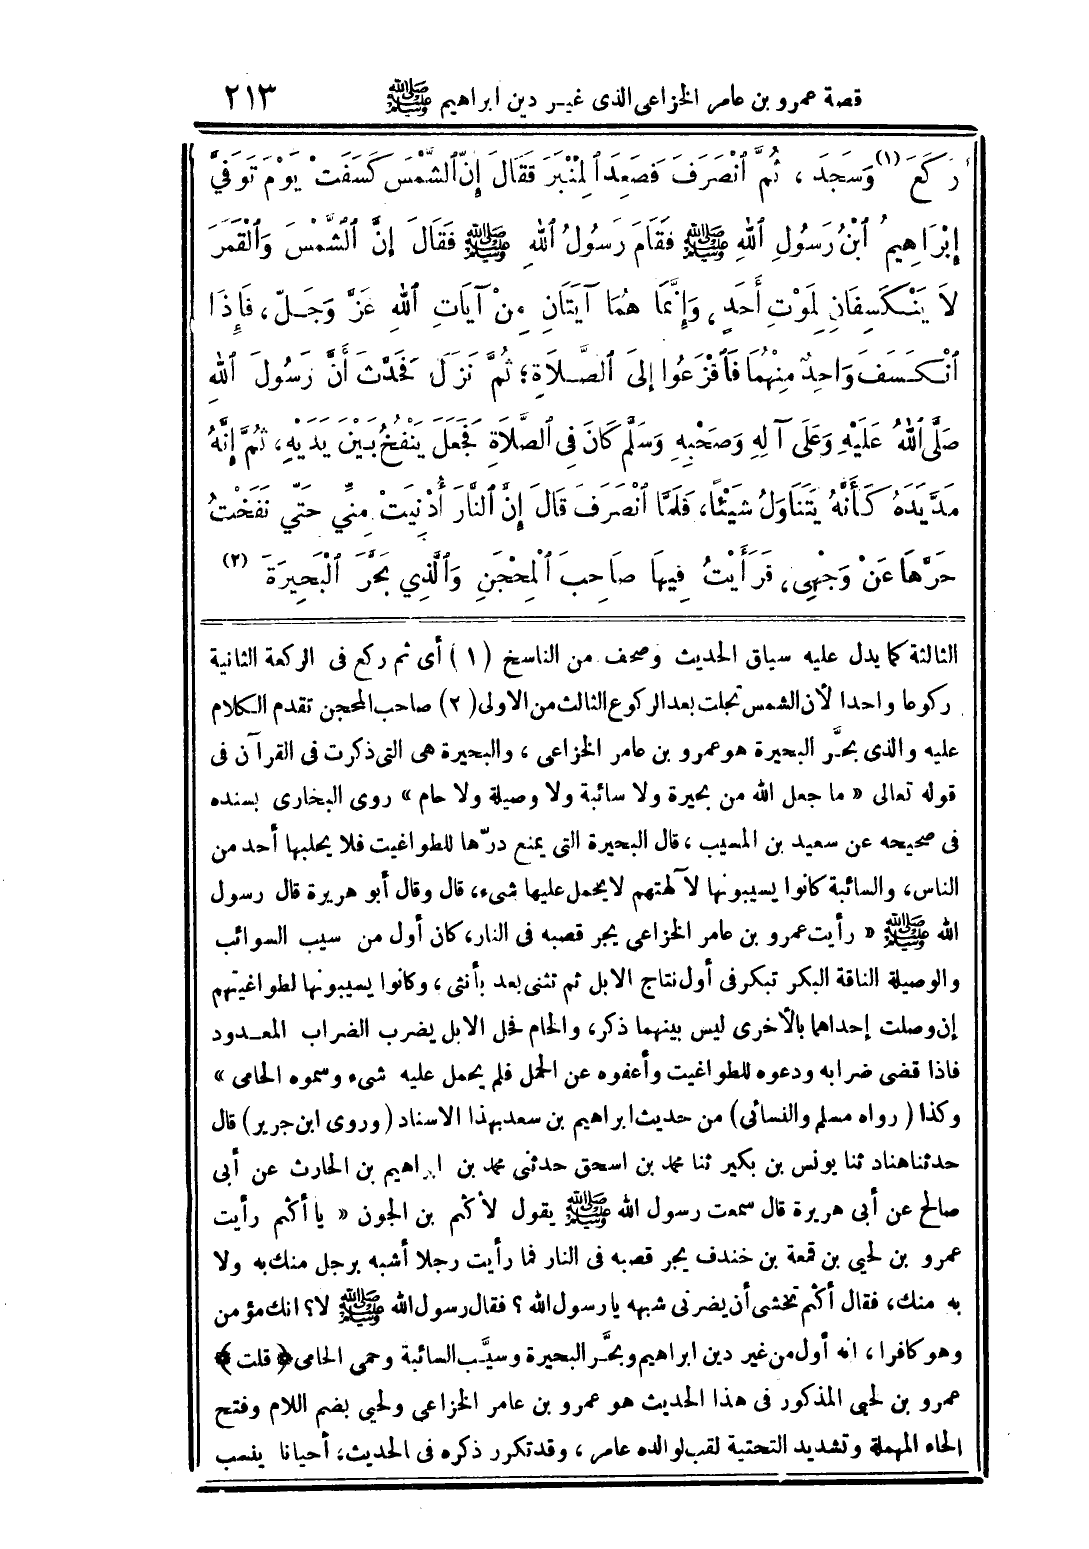 قصة عمرو بن عامر الخزاعى الذى غير دين ابراهيم ﷺ ٢١٣
رَكَعَ (١) وَسَجَدَ ، ثُمَّ ٱنْصَرَفَ فَصَعِدَ ٱلْمِنْبَرَ فَقَالَ إِنَّ ٱلشَّمْسَ كَسَفَتْ يَوْمَ تُوُفِّيَ
إِبْرَاهِيمُ ٱبْنُ رَسُولِ ٱللهِ ﷺ فَقَامَ رَسُولُ ٱللهِ ﷺ فَقَالَ إِنَّ ٱلشَّمْسَ وَٱلْقَمَرَ
لَا يَنْكَسِفَانِ لِمَوْتِ أَحَدٍ ، وَإِنَّمَا هُمَا آيَتَانِ مِنْ آيَاتِ ٱللهِ عَزَّ وَجَلَّ ، فَإِذَا
ٱنْكَسَفَ وَاحِدٌ مِنْهُمَا فَٱفْزَعُوا إِلَى ٱلصَّلَاةِ ؛ ثُمَّ نَزَلَ فَحَدَّثَ أَنَّ رَسُولَ ٱللهِ
صَلَّى ٱللهُ عَلَيْهِ وَعَلَى آلِهِ وَصَحْبِهِ وَسَلَّمَ كَانَ فِى ٱلصَّلَاةِ فَجَعَلَ يَنْفُخُ بَيْنَ يَدَيْهِ ، ثُمَّ إِنَّهُ
مَدَّ يَدَهُ كَأَنَّهُ يَتَنَاوَلُ شَيْئًا ، فَلَمَّا ٱنْصَرَفَ قَالَ إِنَّ ٱلنَّارَ أُدْنِيَتْ مِنِّي حَتَّي نَفَخْتُ
حَرَّهَا عَنْ وَجْهِى ، فَرَأَيْتُ فِيهَا صَاحِبَ ٱلْمِحْجَنِ وَٱلَّذِي بَحَّرَ ٱلْبَحِيرَةَ (٢)
الثالثة كما يدل عليه سياق الحديث وصحف من الناسخ (١) أى ثم ركع فى الركعة الثانية
ركوعا واحدا لأن الشمس تجلت بعد الركوع الثالث من الاولى (٢) صاحب المحجن تقدم الكلام
عليه والذى بحَّر البحيرة هو عمرو بن عامر الخزاعى ، والبحيرة هى التى ذكرت فى القرآن فى
قوله تعالى « ما جعل الله من بحيرة ولا سائبة ولا وصيلة ولا حام » روى البخارى بسنده
فى صحيحه عن سعيد بن المسيب ، قال البحيرة التى يمنع درّها للطواغيت فلا يحلبها أحد من
الناس ، والسائبة كانوا يسيبونها لآلهتهم لا يحمل عليها شىء ، قال وقال أبو هريرة قال رسول
الله ﷺ « رأيت عمرو بن عامر الخزاعى يجر قصبه فى النار ، كان أول من سيب السوائب
والوصيلة الناقة البكر تبكر فى أول نتاج الابل ثم تثنى بعد بأنثى ، وكانوا يسيبونها لطواغيتهم
إن وصلت إحداهما بالأخرى ليس بينهما ذكر ، والحام فحل الابل يضرب الضراب المعدود
فاذا قضى ضرابه ودعوه للطواغيت وأعفوه عن الحمل فلم يحمل عليه شىء وسموه الحامى »
وكذا ( رواه مسلم والنسائى ) من حديث ابراهيم بن سعد بهذا الاسناد ( وروى ابن جرير ) قال
حدثنا هناد ثنا يونس بن بكير ثنا محمد بن اسحق حدثنى محمد بن ابراهيم بن الحارث عن أبى
صالح عن أبى هريرة قال سمعت رسول الله ﷺ يقول لأكثم بن الجون « يا أكثم رأيت
عمرو بن لحيى بن قمعة بن خندف يجر قصبه فى النار فما رأيت رجلا أشبه برجل منك به ولا
به منك ، فقال أكثم تخشى أن يضرنى شبهه يا رسول الله ؟ فقال رسول الله ﷺ لا ؟ انك مؤمن
وهو كافر ا ، انه أول من غير دين ابراهيم وبحَّر البحيرة وسيَّب السائبة وحمى الحامى ﴿ قلت ﴾
عمرو بن لحيى المذكور فى هذا الحديث هو عمرو بن عامر الخزاعى ولحيى بضم اللام وفتح
الحاء المهملة وتشديد التحتية لقب لوالده عامر ، وقد تكرر ذكره فى الحديث ، أحيانا ينسب